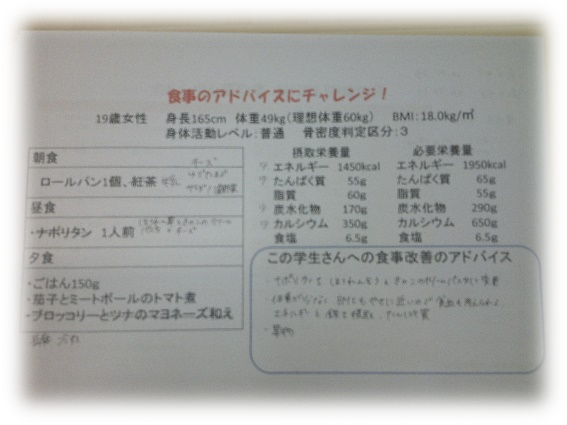 食事のアドバイスにチャレンジ!
19歳女性 身長165cm 体重49kg(理想体重60kg) BMI:18.0kg/㎡
身体活動レベル:普通 骨密度判定区分:3
朝食
チーズ
ロールパン1個、紅茶
ゆでたまご
昼食
・ナポリタン 1人前
夕食
・ごはん150g
・茄子とミートボールのトマト煮
・ブロッコリーとツナのマヨネーズ和え
摂取栄養量 必要栄養量
エネルギー 1450kcal エネルギー 1950kcal
たんぱく質 55g たんぱく質 65g
脂質 60g 脂質 55g
炭水化物 170g 炭水化物 290g
カルシウム 350g カルシウム 650g
食塩 6.5g 食塩 6.5g
この学生さんへの食事改善のアドバイス
・ナポリタンを(ほうれん草)ときのこのクリームパスタに変更
・果物